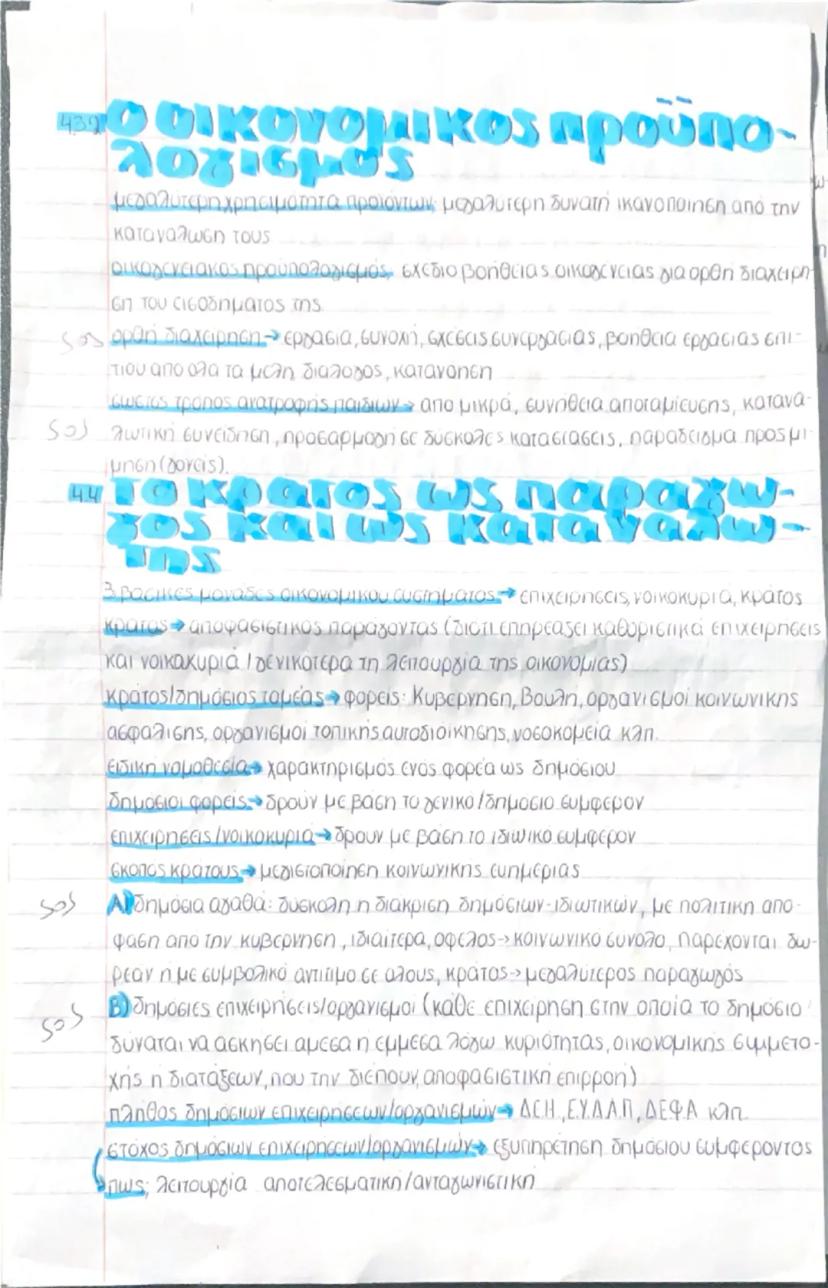 4.3.2 Ο οικονομικος προϋπο-
λογισμος
μεγαλυτερη χρησιμότητα προϊόντων, μεγαλυτερη δυνατή ικανοποιηση από την
κατανάλωση τους
οικογενειακος προυπολογισμος, σχέδιο βοήθειας οικογένειας για ορθη διαχειρη-
ση του εισοδηματος της
SOS ορθή διαχειρηση → εργασια, συνοχή, σχέσεις συνεργασιας, βοηθεια εργασιας σπι-
τιου απο ολα τα μελη διαλογος, κατανοηση
σωστος τροπος ανατροφης παιδιων → απο μικρά, συνηθεια αποταμιευσης, κατανα-
SOS λωτική συνείδηση, προσαρμογη σε δυσκολες καταστασεις, παραδειγμα προς μι-
μηση (γονεις).
4.4 Το κρατος ως παραγω-
γος και ως καταναλω-
της
3 βασικες μοναδες οικονομικου συστηματος → επιχειρησεις, νοικοκυρια, κράτος
κρατος → αποφασιστικος παράγοντας (διοτι επηρεάζει καθοριστικά επιχειρησεις
και νοικοκυριά / γενικότερα τη λειτουργία της οικονομιας)
κράτος/δημόσιος τομέας → φορείς: Κυβερνηση, Βουλη, οργανισμοί κοινωνικης
ασφαλισης, οργανισμοι τοπικής αυτοδιοικησης, νοσοκομεία κλπ.
ειδικη νομοθεσια → χαρακτηρισμός ενός φορέα ως δημόσιου
δημοσιοι φορεις → δρούν με βάση το γενικο/δημοσιο συμφερον
επιχειρησεις/νοικοκυρια → δρουν με βάση το ιδιωικο συμφερον
σκοπος κρατους → μεγιστοποίηση κοινωνικης ευημέριας
SOS Α) δημόσια αγαθά: δυσκολη η διακριση δημόσιων-ιδιωτικών, με πολιτικη απο-
φαση απο την κυβερνηση, ιδιαιτερα, οφελος → κοινωνικο συνολο, παρέχονται δω-
ρεάν η με συμβολικό αντιτιμο σε ολους, κράτος → μεγαλύτερος παραγωγός
SOS Β) δημόσιες επιχειρησεις/οργανισμοί (κάθε επιχειρηση στην οποία το δημόσιο
δυναται να ασκησει αμεσα η εμμεσα λόγω κυριότητας, οικονομικης συμμετο-
χής η διατάξεων, που την διέπουν, αποφασιστική επιρροή)
πληθος δημόσιων επιχειρήσεων/οργανισμών → ΔΕΗ, Ε.Υ.Δ.Α.Π, ΔΕΦΑ κλπ.
στόχος δημοσιων επιχειρησεων/οργανισμών → εξυπηρέτηση δημόσιου συμφεροντος
πως; λειτουργία αποτελεσματική/ανταγωνιστική